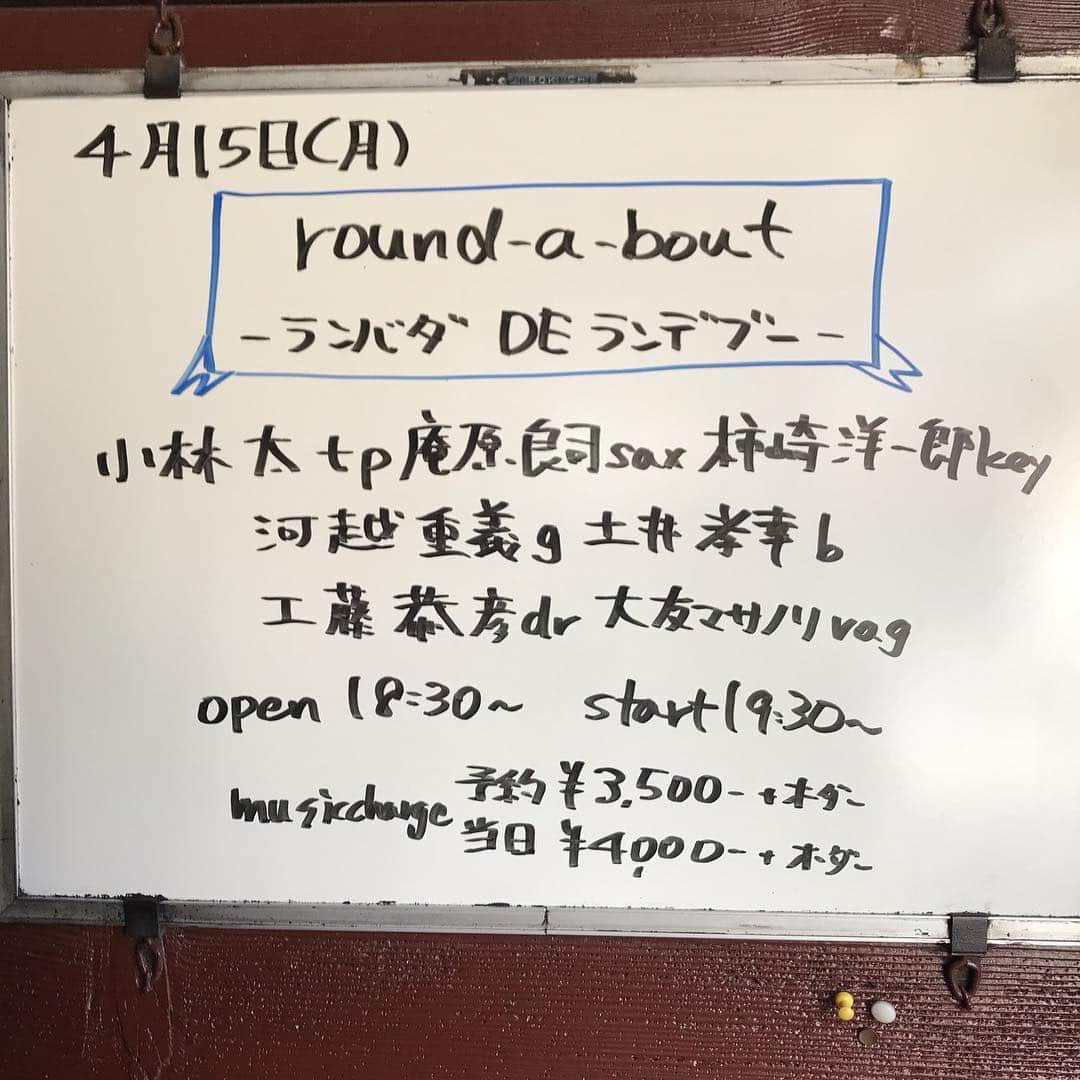 4月15日(月)
round-a-bout
-ランバダ DE ランデブー-
小林 太 tp 庵原 良司 sax 柿崎洋一郎 key
河越 重義 g 土井 孝幸 b
工藤 恭彦 dr 大友マサノリ vo.g
open 18:30~ start 19:30~
musiccharge 予約 ¥3,500-+オーダー
当日 ¥4,000-+オーダー